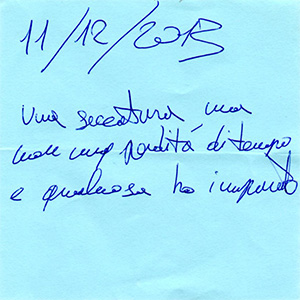 11/12/2013
una seccatura, ma
non una perdita di tempo
e qualcosa ho imparato